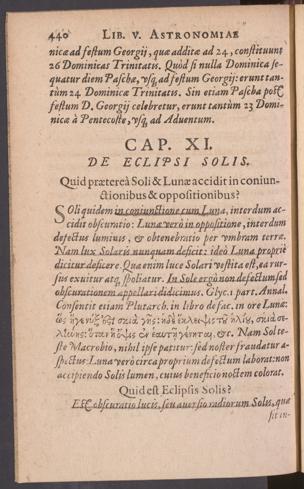 440 LIB. V. ASTRONOMIAE
nicæ ad festum Georgij, quæ additæ ad 24, constituunt
26 Dominicas Trinitatis. Quòd si nulla Dominica se-
quatur diem Paschæ, vsq; ad festum Georgij: erunt tan-
tùm 24 Dominicæ Trinitatis. Sin etiam Pascha post
festum D. Georgij celebretur, erunt tantùm 23 Domi-
nicæ à Pentecoste, vsq; ad Aduentum.
CAP. XI.
DE ECLIPSI SOLIS.
Quid prætereà Soli & Lunæ accidit in coniun-
ctionibus & oppositionibus?
SOli quidem in coniunctione cum Luna, interdum ac-
cidit obscuratio: Lunæ verò in oppositione, interdum
defectus luminis, & obtenebratio per vmbram terræ.
Nam lux Solaris nunquam deficit: ideò Luna propriè
dicitur deficere. Quæ enim luce Solari vestita est, ea rur-
sus exuitur atq; spoliatur. In Sole ergò non defectum sed
obscurationem appellari didicimus. Glyc. 1. part. Annal.
Consentit etiam Plutarch. in libro de fac. in ore Lunæ:
&c. Nam Sol te-
ste Macrobio, nihil ipse patitur: sed noster fraudatur a-
spectus: Luna verò circa proprium defectum laborat: non
accipiendo Solis lumen, cuius beneficio noctem colorat.
Quid est Eclipsis Solis?
Est obscuratio lucis, seu auersio radiorum Solis, quæ
fit in-